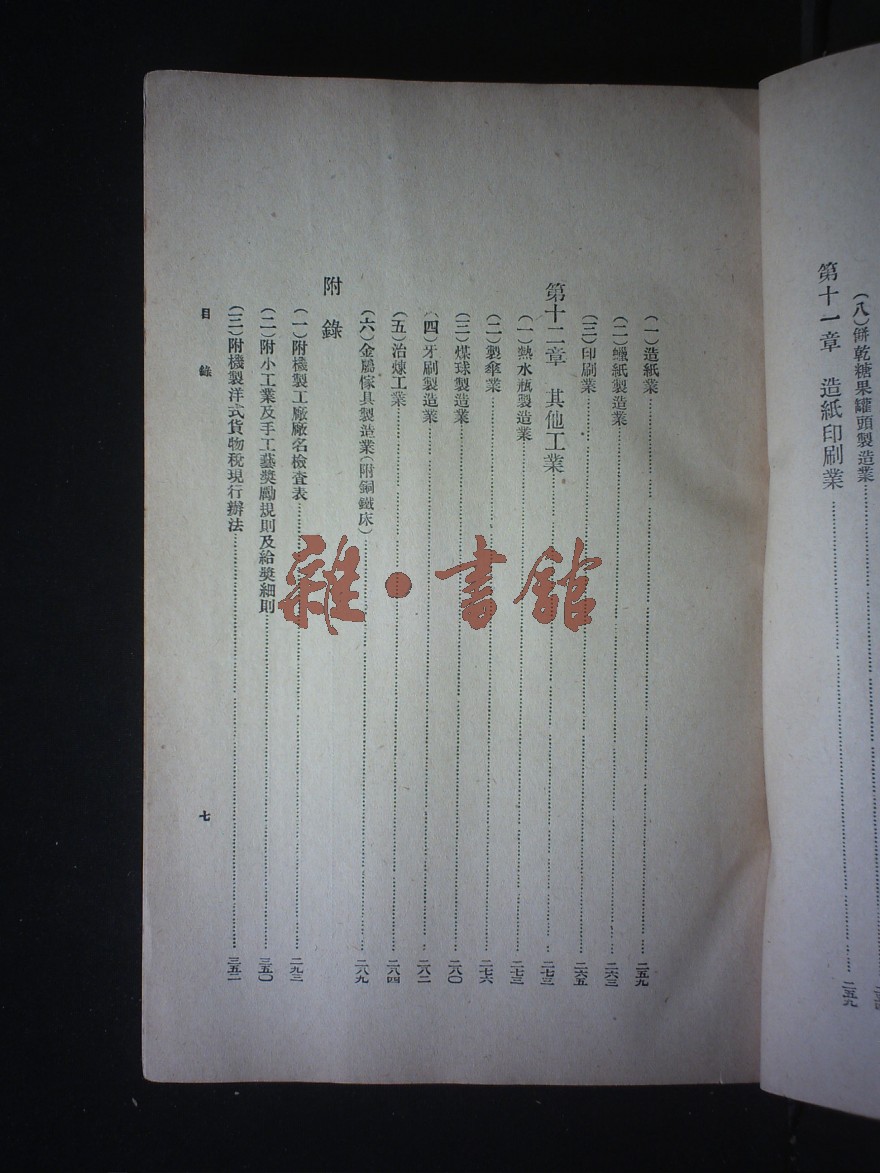 (八)餅乾糖果罐頭製造業
第十一章 造紙印刷業 二五九
(一)造紙業 二五九
(二)蠟紙製造業 二六三
(三)印刷業 二六五
第十二章 其他工業 二七三
(一)熱水瓶製造業 二七三
(二)製傘業 二七六
(三)煤球製造業 二八〇
(四)牙刷製造業 二八二
(五)冶煉工業 二八四
(六)金屬傢具製造業(附銅鐵床) 二八九
附錄
(一)附機製工廠廠名檢查表 二九三
(二)附小工業及手工藝獎勵規則及給獎細則 三五〇
(三)附機製洋式貨物稅現行辦法 三五二
目錄 七
雜·書館